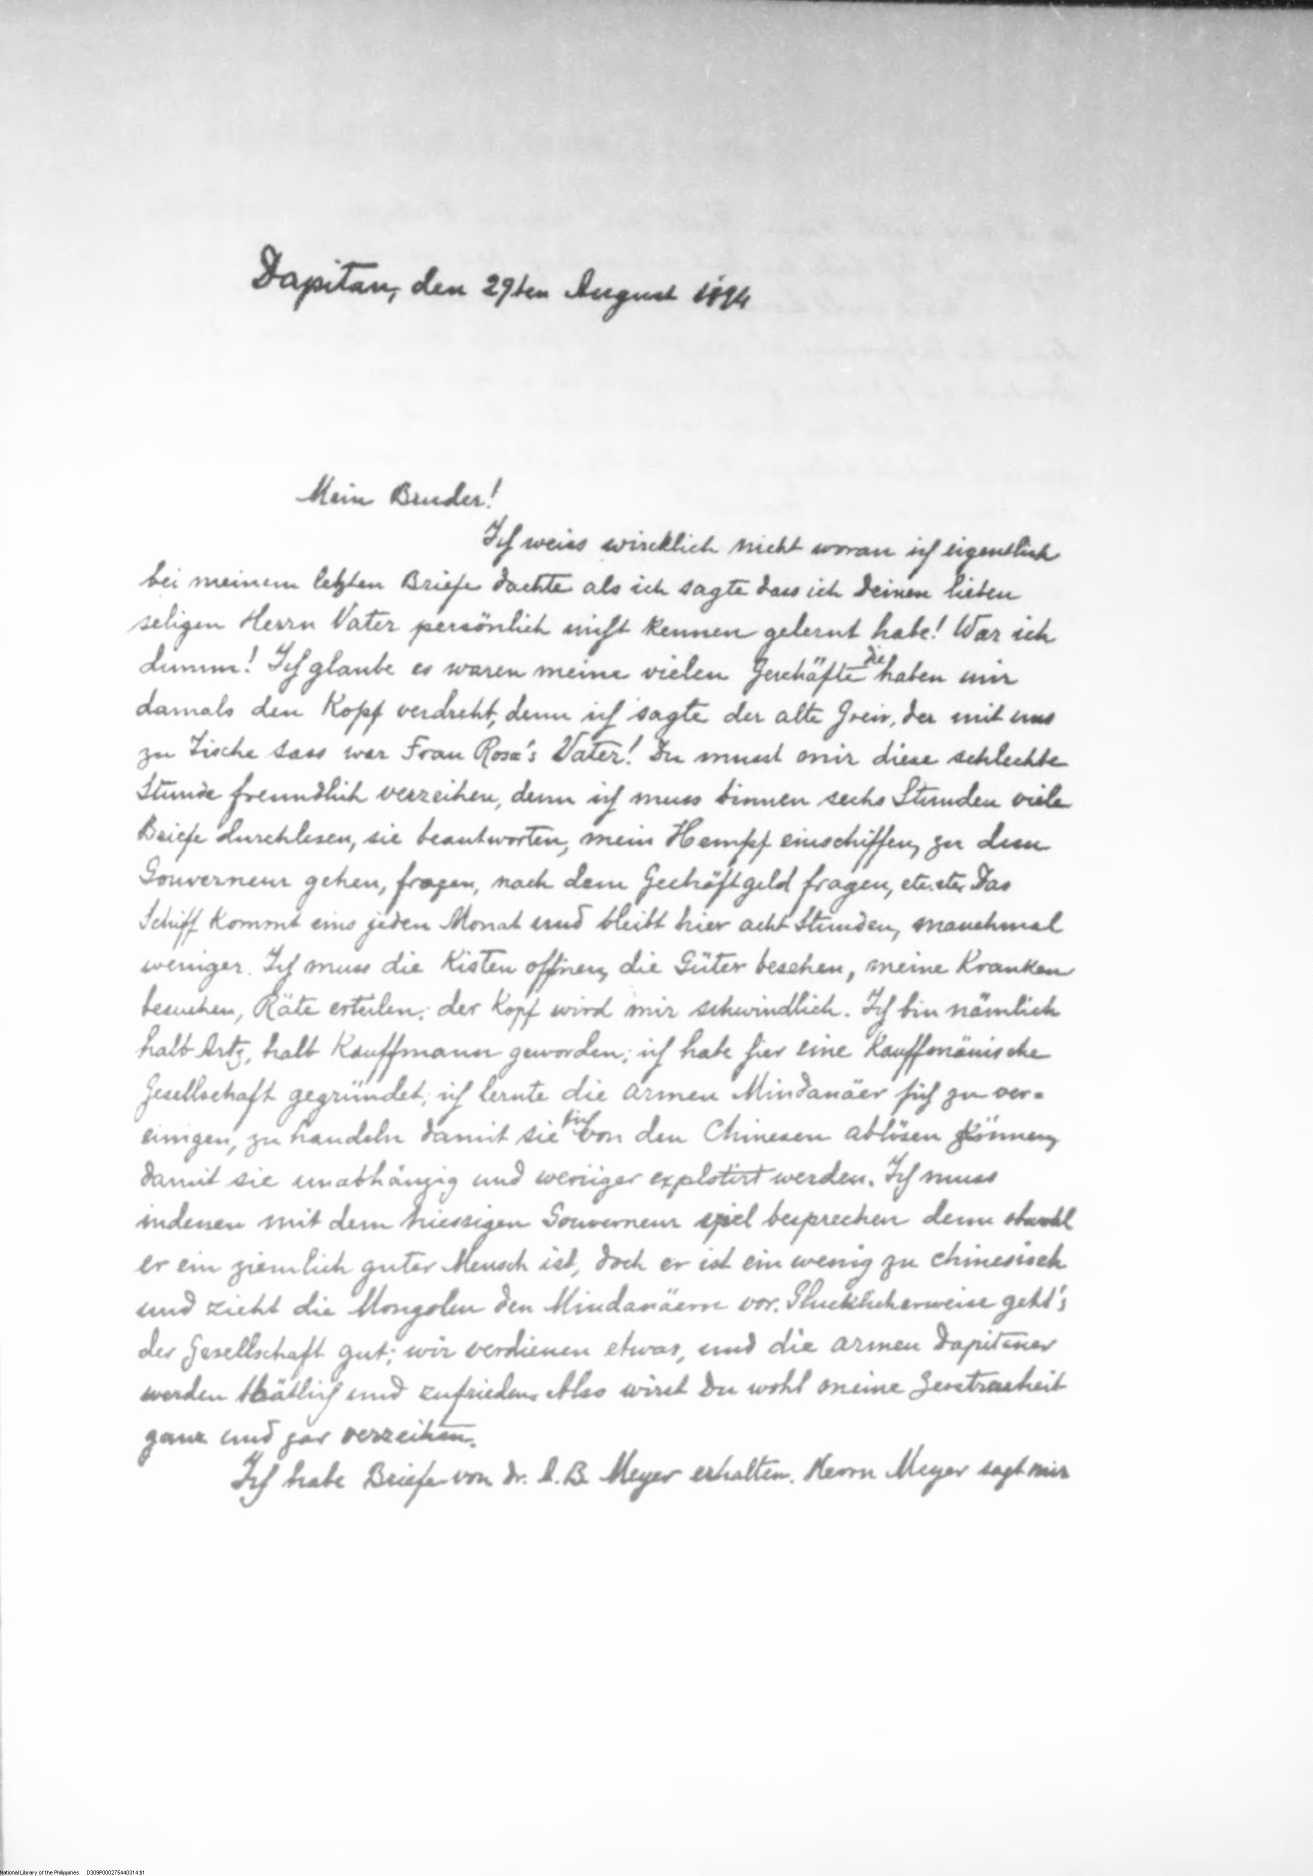 Dapitan, den 29ten August 1894
Mein Bruder!
Ich weiss wircklich nicht woran ich eigentlich
bei meinem letzten Briefe dachte als ich sagte dass ich Deinen lieben
seligen Herrn Vater persönlich nicht kennen gelernt habe! War ich
dumm! Ich glaube es waren meine vielen Geschäfte die haben mir
damals den Kopf verdreht, denn ich sagte der alte Greis, der mit uns
zu Tische sass war Frau Rosa's Vater! Du musst mir diese schlechte
Stunde freundlich verzeihen, denn ich muss binnen sechs Stunden viele
Briefe durchlesen, sie beantworten, mein Hempf einschiffen, zu dem
Gouverneur gehen, fragen, nach dem Gechäftgeld fragen, etc. etc. Das
Schiff kommt eins jeden Monat und bleibt hier acht Stunden, manchmal
weniger. Ich muss die Kisten offnen, die Güter besehen, meine Kranken
besuchen, Räte erteilen; der Kopf wird mir schwindlich. Ich bin nämlich
halb Artz, halb Kauffmann geworden; ich habe hier eine Kauffmänische
Gesellschaft gegründet; ich lernte die armen Mindanäer sich zu ver-
einigen, zu handeln damit sie sich von den Chinesen ablösen können,
damit sie unabhängig und weniger explotirt werden. Ich muss
indessen mit dem hiessigen Gouverneur spiel besprechen denn obwohl
er ein ziemlich guter Mensch ist, doch er ist ein wenig zu chinesisch
und zieht die Mongolen den Mindanäern vor. Glucklicherweise geht's
der Gesellschaft gut; wir verdienen etwas, und die armen Dapitaner
werden thätlich und zufrieden. Also wirst Du wohl meine Zerstreuheit
ganz und gar verzeihen.
Ich habe Briefe von Dr. A. B. Meyer erhalten. Herrn Meyer sagt mir
National Library of the Philippines